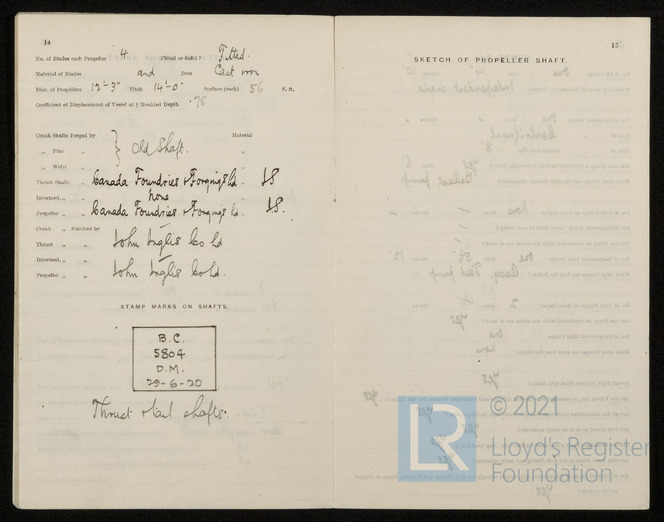 14
No. of Blades each Propeller 4 Fitted or Solid? Fitted.
Material of Blades and Boss Cast iron
Diar. of Propellers 12'-3" Pitch 14'-0" Surface (each) 56 S. ft.
Coefficient of Displacement of Vessel at ¾ Moulded Depth .78
Crank Shafts Forged by Material
" Pins " } Old Shaft. "
" Webs " "
Thrust Shafts " Canada Foundries & Forgings Ld " IS
Intermed. " " none "
Propeller " " Canada Foundries & Forgings Ld " IS.
Crank " Finished by
Thrust " " John Inglis Co Ld
Intermed. " "
Propeller " " John Inglis Co Ld.
STAMP MARKS ON SHAFTS.
B.C.
5804
D.M.
29-6-20
Thrust & tail shafts.
15
SKETCH OF PROPELLER SHAFT.
LR
© 2021
Lloyd's Register
Foundation